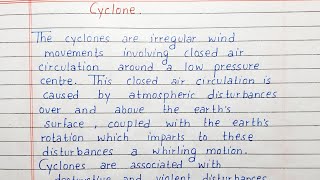 Cyclone.
The cyclones are irregular wind
movements involving closed air
circulation around a low pressure
centre. This closed air circulation is
caused by atmospheric disturbances
over and above the earth's
surface, coupled with the earth's
rotation which imparts to these
disturbances a whirling motion.
Cyclones are associated with
destructive and violent disturbances